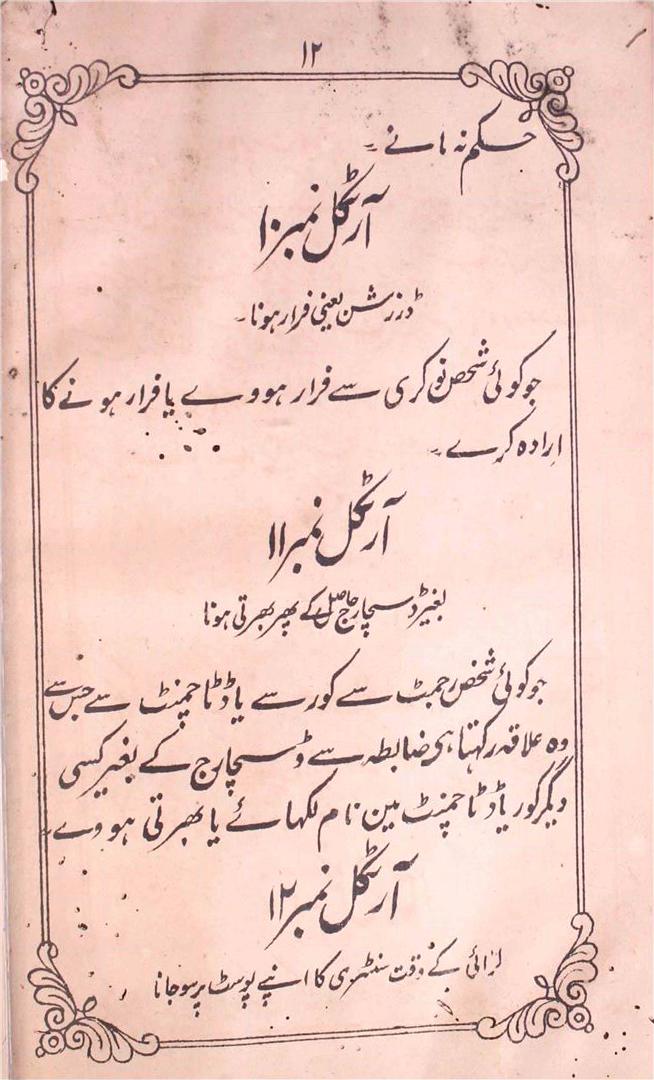 ۱۲
حکم نہ مانے۔
آرٹکل نمبر ۱۰
ڈزرشن یعنی فرار ہونا۔
جو کوئی شخص نوکری سے فرار ہووے یا فرار ہونے کا
ارادہ کرے۔
آرٹکل نمبر ۱۱
بغیر ڈسچارج حاصل کے پھر بھرتی ہونا
جو کوئی شخص رجمٹ سے کور سے یا ڈٹاچمنٹ سے جس سے
وہ علاقہ رکہتا ہی ضابطہ سے ڈسچارج کے بغیر کسی
دیگر کور یا ڈٹاچمنٹ مین نام لکھائے یا بھرتی ہووے۔
آرٹکل نمبر ۱۲
لڑائی کے وقت سنٹری کا اپنے پوسٹ پر سوجانا